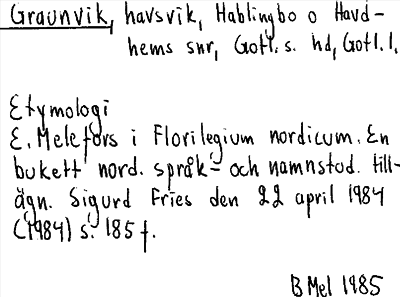 Graunvik, havsvik, Hablingbo o Havd-
hems snr, Gotl. s. hd, Gotl. l.
Etymologi
E. Melefors i Florilegium nordicum. En
bukett nord. språk- och namnstud. till-
ägn. Sigurd Fries den 22 april 1984
(1984) s. 185 f.
B Mel 1985